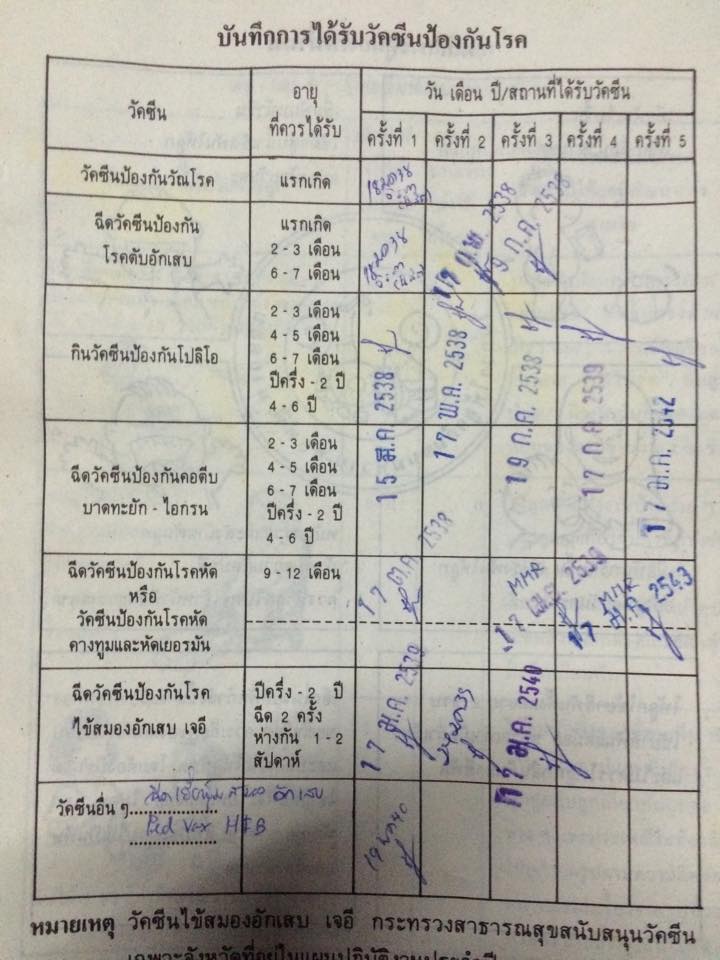 บันทึกการได้รับวัคซีนป้องกันโรค
วัคซีน
อายุ
ที่ควรได้รับ
วัน เดือน ปี/สถานที่ได้รับวัคซีน
ครั้งที่ 1 ครั้งที่ 2 ครั้งที่ 3 ครั้งที่ 4 ครั้งที่ 5
วัคซีนป้องกันวัณโรค
แรกเกิด
ฉีดวัคซีนป้องกัน
โรคตับอักเสบ
แรกเกิด
2 - 3 เดือน
6 - 7 เดือน
17 ก.พ. 2538
19 ก.ค. 2538
กินวัคซีนป้องกันโปลิโอ
2 - 3 เดือน
4 - 5 เดือน
6 - 7 เดือน
ปีครึ่ง - 2 ปี
4 - 6 ปี
ฉีดวัคซีนป้องกันคอตีบ
บาดทะยัก - ไอกรน
2 - 3 เดือน
4 - 5 เดือน
6 - 7 เดือน
ปีครึ่ง - 2 ปี
4 - 6 ปี
15 มี.ค. 2538
17 พ.ค. 2538
19 ก.ค. 2538
17 ก.ค. 2539
17 2542
ฉีดวัคซีนป้องกันโรคหัด
หรือ
วัคซีนป้องกันโรคหัด
คางทูมและหัดเยอรมัน
9 - 12 เดือน
17 ต.ค. 2538
MMR
17 2539
MMR
17 2543
ฉีดวัคซีนป้องกันโรค
ไข้สมองอักเสบ เจอี
ปีครึ่ง - 2 ปี
ฉีด 2 ครั้ง
ห่างกัน 1 - 2
สัปดาห์
17 ม.ค. 2539
17 ม.ค. 2540
วัคซีนอื่น ๆ ฉีดเยื่อหุ้มสมอง อักเสบ
Ped Vax HIB
หมายเหตุ วัคซีนไข้สมองอักเสบ เจอี กระทรวงสาธารณสุขสนับสนุนวัคซีน
เฉพาะจังหวัดที่อยู่ในแผนปฏิบัติงานประจำปี